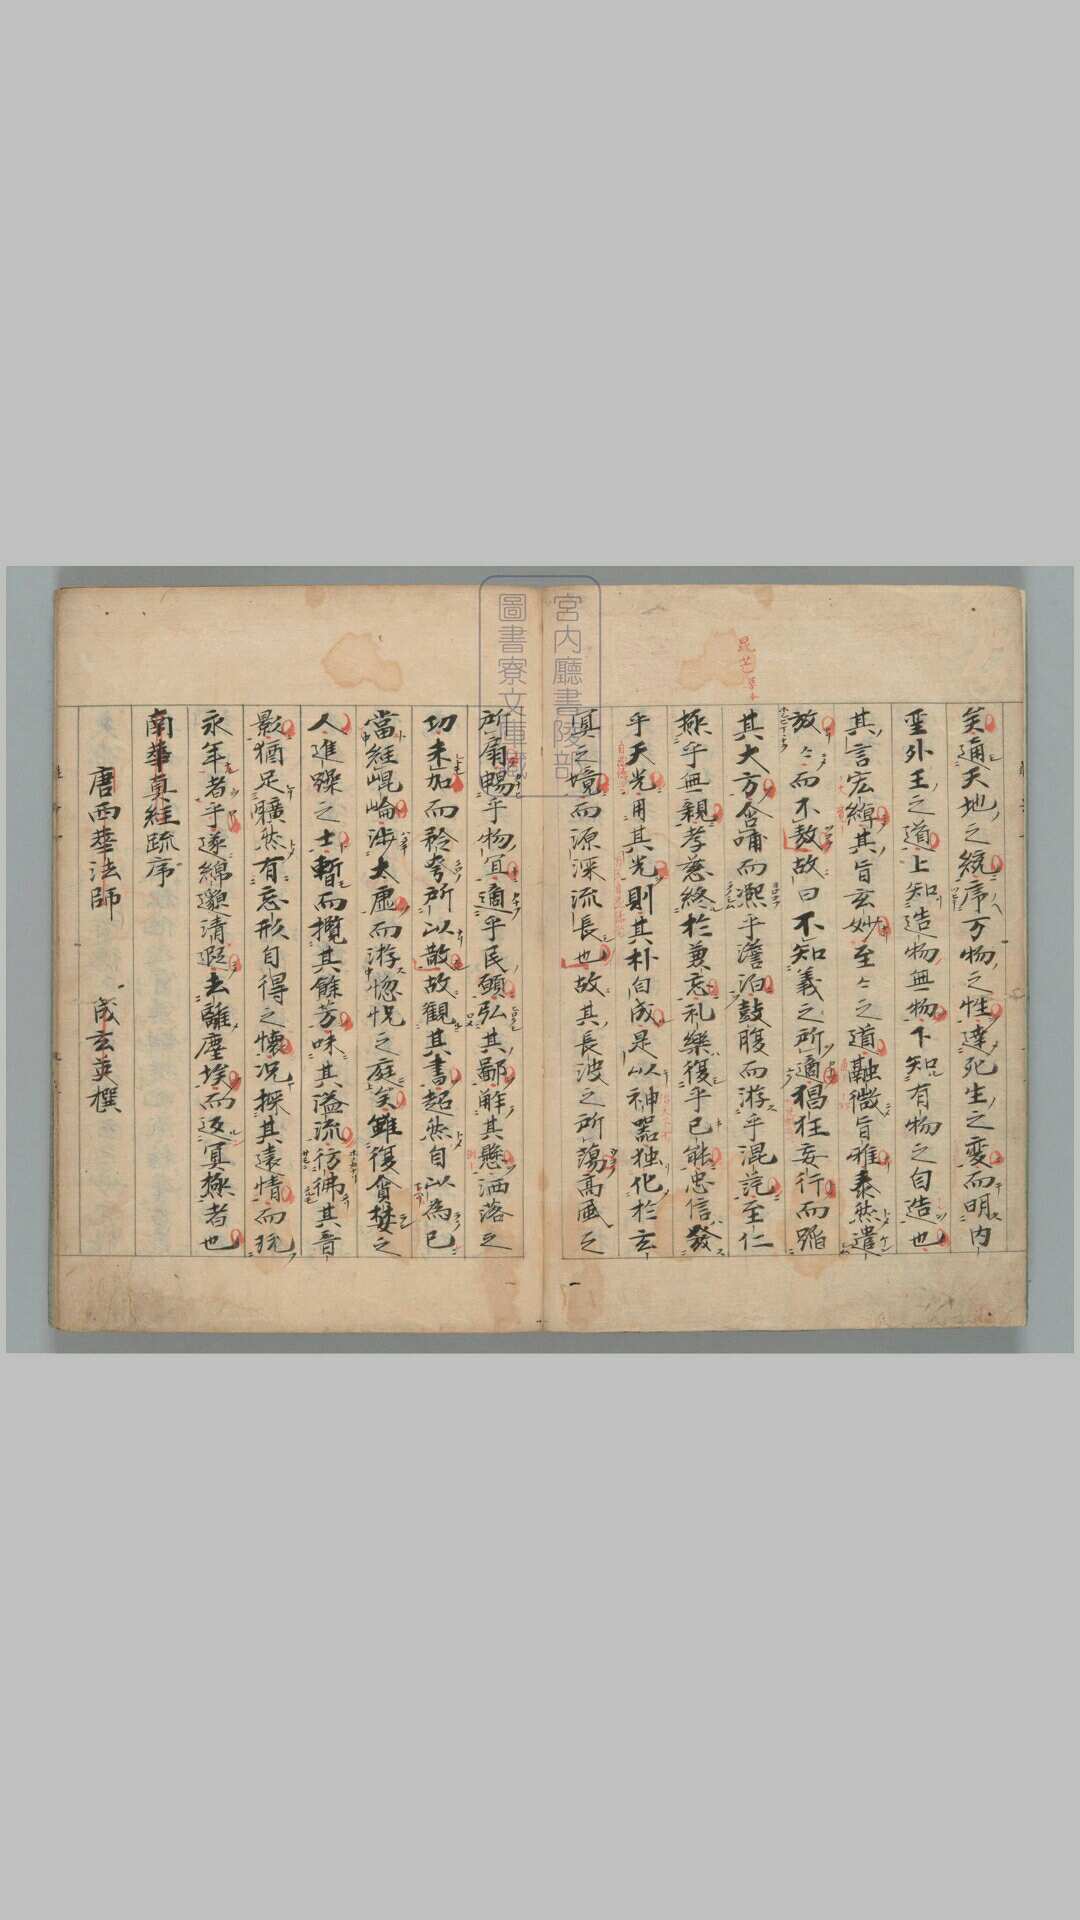 矣通天地之統序万物之性達死生之變而明内
聖外王之道上知造物無物下知有物之自造也
其言宏綽其旨玄妙至〻之道融微旨雅泰然遣
放〻而不敖故曰不知義之所適猖狂妄行而蹈
其大方含哺而熈乎澹泊鼓腹而游乎混茫至仁
極乎無親孝慈終於兼忘礼樂復乎已能忠信發
乎天光用其光則其朴自成是以神器独化於玄
冥之境而源深流長也故其長波之所蕩高風之
所扇暢乎物宜適乎民願弘其鄙解其懸洒落之
功未加而矜夸所以散故觀其書超然自以為已
當経崐崘涉太虚而游惚怳之庭矣雖復貪婪之
人進躁之士暫而攬其餘芳味其溢流彷彿其音
影猶足曠然有忘形自得之懐况探其遠情而玩
永年者乎遂綿邈清遐去離塵埃而返冥極者也
南華真経疏序
唐西華法師 成玄英撰
宮内廳書陵部
圖書寮文庫藏